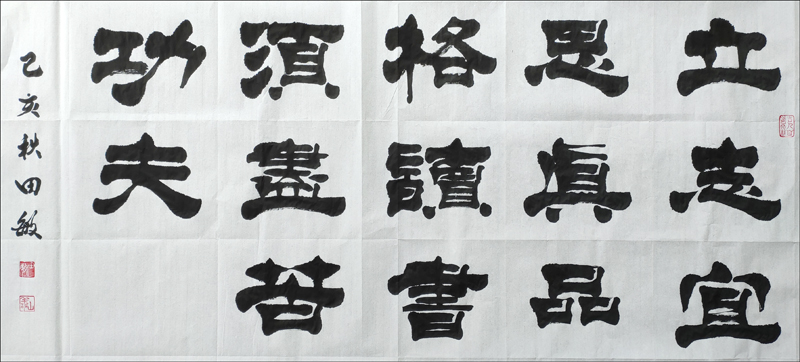 立志宜
思眞品
格讀書
須盡苦
功夫
乙亥秋田敏